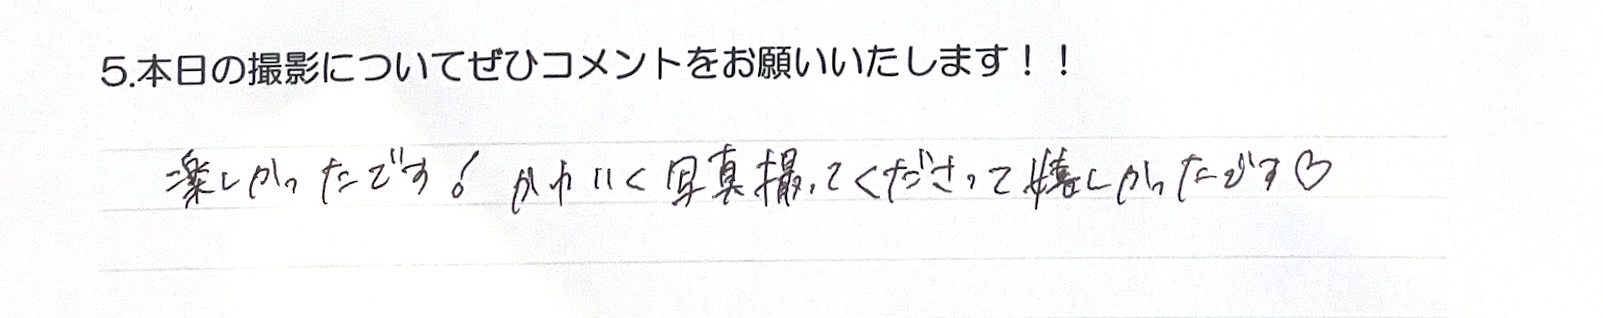 5.本日の撮影についてぜひコメントをお願いいたします！！
楽しかったです！かわいく写真撮ってくださって嬉しかったです♡